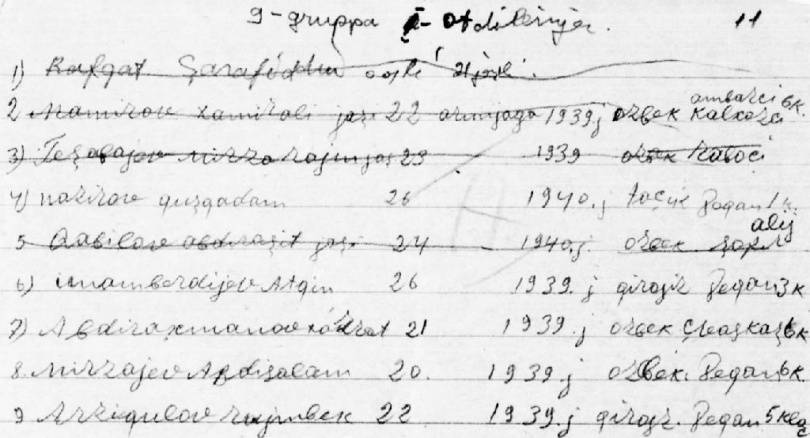 9-gruppa I-otdilenije. 11
1) Rafqat Şarafiddin oƣlь 21 jaşlь.
2 Mamirov xamirali jaşi 22 armijaga 1939.j ozbek ambarci 6k. kalxozcь
3) Teşabajev mirzarajim jaş 23 1939 ozbek
4) nazirov quzgadam 26 1940.j toçik Fegan 1k.
5 Qabilov abdiraşit jaşi 24 - 1940.j. ozbek alij
6) imamberdijev Atqin 26 1939.j qirƣiz Fegan 3k
7) Abdiraxmanov xudrat 21 1939.j ozbek 6k
8. Mirzajev Abdisalam 20. 1939.j ozbek. Fegan 6k.
9 Arziqulov rajimbek 22 1939.j qirƣiz. Fegan 5 klas